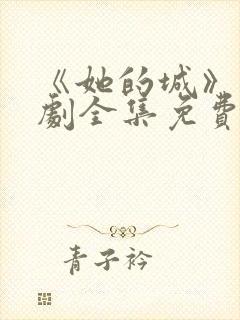 《她的城》
劇全集免費
青子衿